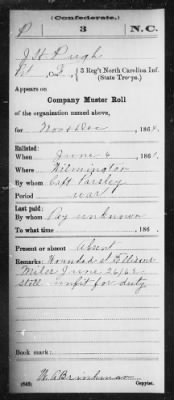 (Confederate.)
P 3 N.C.
J H Pugh
Pvt Co. F, 3 Reg't North Carolina Inf.
(State Tro'ps.)
Appears on
Company Muster Roll
of the organization named above,
for Nov & Dec, 186
Enlisted:
When June 6, 186
Where Wilmington
By whom Capt Parsley
Period war
Last paid:
By whom Pay unknown
To what time, 186
Present or absent Absent
Remarks: Wounded at Ellison
Miles June 26/62
still unfit for duty
Book mark:
W. A. Brinkman
(642) Copyist.